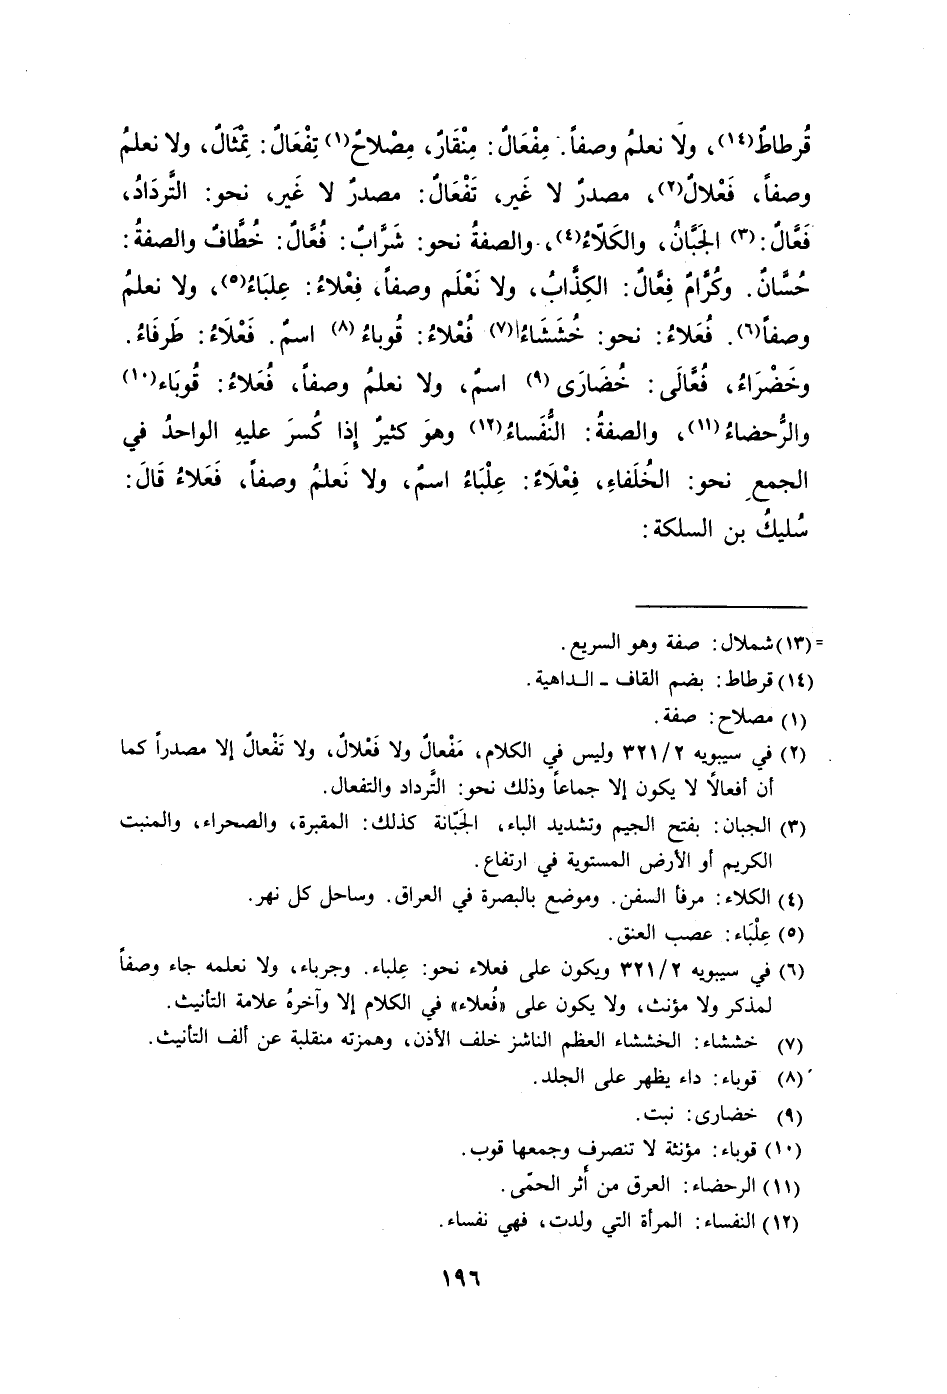 قُرطاطٌ(١٤)، ولَا نعلمُ وصفاً. مِفْعَالٌ: مِنْقَارٌ، مِصْلاحٌ(١) تِفْعَالٌ: تِمْثَالٌ، ولا نعلمُ
وصفاً، فَعْلالٌ(٢)، مصدرٌ لا غَير، تَفْعَالٌ: مصدرٌ لا غَير، نحو: التَّردَادُ،
فَعَّالٌ:(٣) الجَبَّانُ، والكَلاّءُ(٤)، والصفةُ نحو: شَرَّابٌ: فُعَّالٌ: خُطَّافٌ والصفةُ:
حُسَّانٌ. وكُرَّامٌ فِعَّالٌ: الكِذَّابُ، ولا نَعْلَم وصفاً، فِعْلاءُ: عِلبَاءُ(٥)، ولا نعلمُ
وصفاً(٦). فُعَلاءُ: نحو: خُشَشَاءُ(٧) فُعْلاءُ: قُوباءُ(٨) اسمٌ. فَعْلَاءُ: طَرفَاءُ.
وخَضْرَاءُ، فُعَّالَى: خُضَارَى(٩) اسمٌ، ولا نعلمُ وصفاً، فُعَلاءُ: قُوبَاء(١٠)
والرُّحضاءُ(١١)، والصفةُ: النُّفَساءُ(١٢) وهوَ كثيرٌ إِذا كُسرَ عليهِ الواحدُ في
الجمعِ نحو: الخُلَفاءِ، فِعْلَاءُ: عِلْبَاءُ اسمٌ، ولا نَعلمُ وصفاً، فَعَلاءُ قَالَ:
سُليكُ بن السلكة:
=(١٣) شملال: صفة وهو السريع.
(١٤) قرطاط: بضم القاف ـ الداهية.
(١) مصلاح: صفة.
(٢) في سيبويه ٣٢١/٢ وليس في الكلام، مَفْعالٌ ولا فَعْلالٌ، ولا تَفْعالٌ إلا مصدراً كما
أن أفعالًا لا يكون إلا جماعاً وذلك نحو: التَّرداد والتفعال.
(٣) الجبان: بفتح الجيم وتشديد الباء، الجَبّانة كذلك: المقبرة، والصحراء، والمنبت
الكريم أو الأرض المستوية في ارتفاع.
(٤) الكلاء: مرفأ السفن. وموضع بالبصرة في العراق. وساحل كل نهر.
(٥) عِلْبَاء: عصب العنق.
(٦) في سيبويه ٣٢١/٢ ويكون على فعلاء نحو: عِلباء. وجرباء، ولا نعلمه جاء وصفاً
لمذكر ولا مؤنث، ولا يكون على «فُعلاء» في الكلام إلا وآخرهُ علامة التأنيث.
(٧) خششاء: الخششاء العظم الناشز خلف الأذن، وهمزته منقلبة عن ألف التأنيث.
(٨) قوباء: داء يظهر على الجلد.
(٩) خضارى: نبت.
(١٠) قوباء: مؤنثة لا تنصرف وجمعها قوب.
(١١) الرحضاء: العرق من أثر الحمّى.
(١٢) النفساء: المرأة التي ولدت، فهي نفساء.
١٩٦